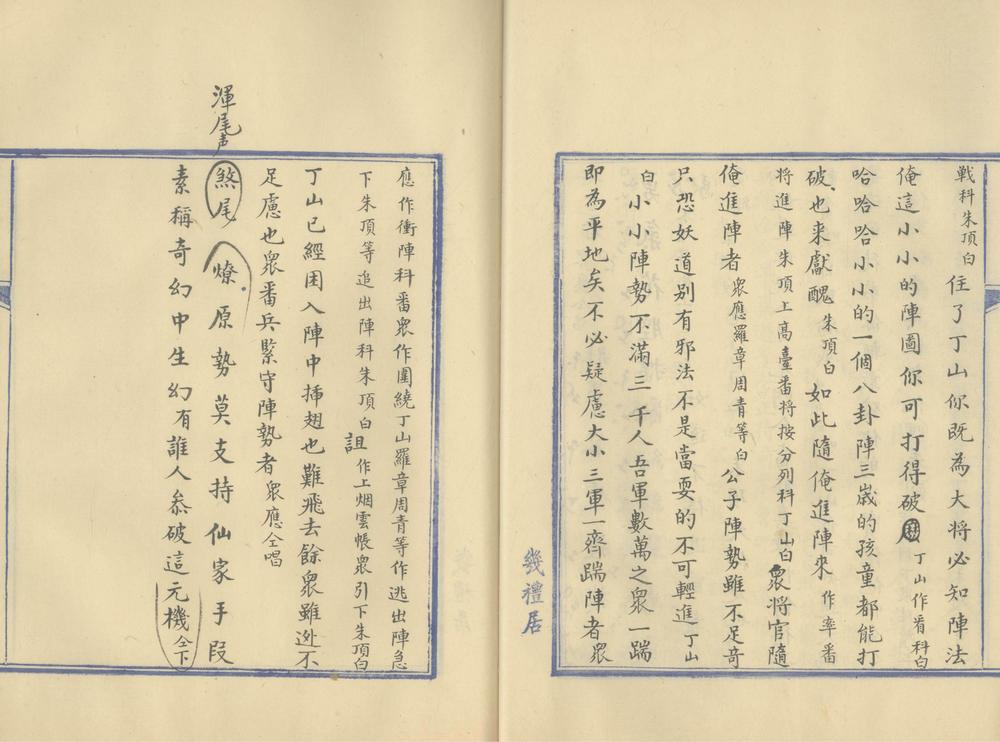 戰科朱頂白住了丁山你既為大将必知陣法
俺這小小的陣圖你可打得破丁山作看科白
哈哈哈小小的一個八卦陣三歲的孩童都能打
破也来獻醜朱頂白如此隨俺進陣來作率番
将進陣朱頂上高臺番将按分列科丁山白衆將官隨
俺進陣者衆應羅章周青等白公子陣勢雖不足奇
只恐妖道别有邪法不是當耍的不可輕進丁山
白小小陣勢不滿三千人吾軍數萬之衆一踹
即為平地矣不必疑慮大小三軍一齊踹陣者衆
幾禮居
應作衝陣科番衆作圍繞丁山羅章周青等作逃出陣急
下朱頂等追出陣科朱頂白詛作上烟雲帳衆引下朱頂白
丁山已經困入陣中揷翅也難飛去餘衆雖迯不
足慮也衆番兵緊守陣勢者衆應仝唱
渾尾声
煞尾燎原勢莫支持仙家手段
素稱奇幻中生幻有誰人叅破這元機仝下